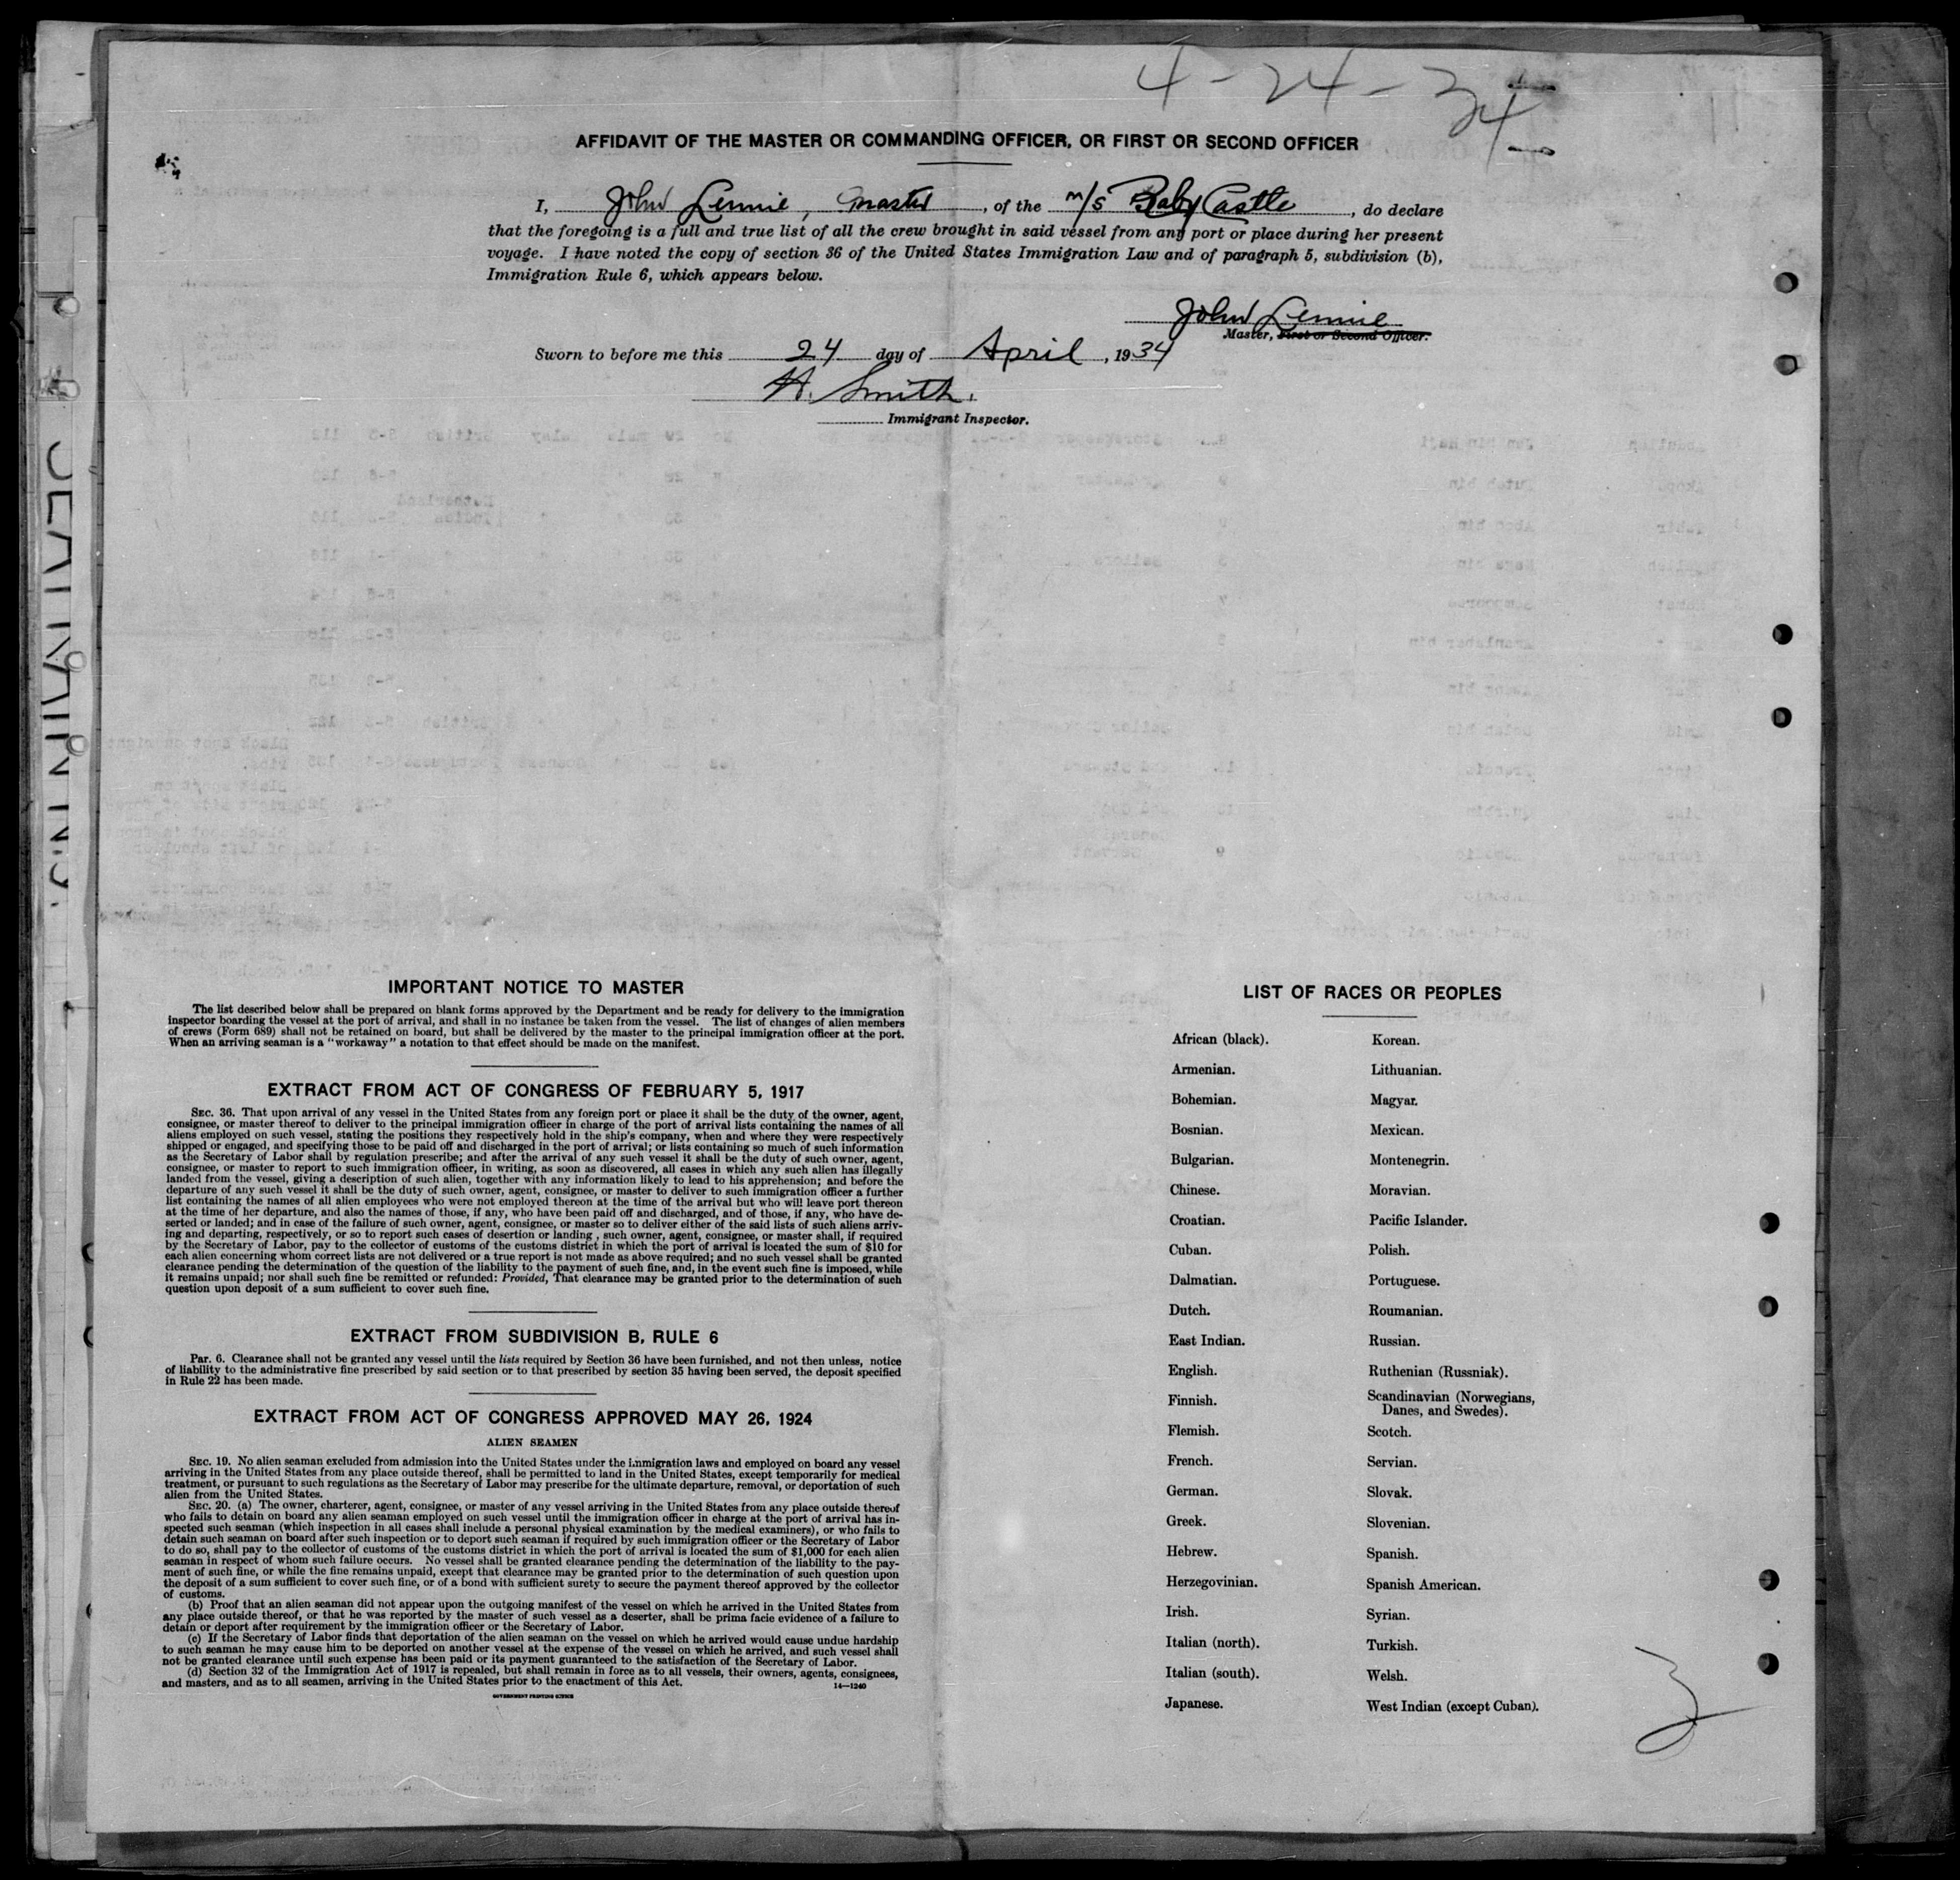 4-24-34
AFFIDAVIT OF THE MASTER OR COMMANDING OFFICER, OR FIRST OR SECOND OFFICER
I, John Lennie, Master, of the M/S Raby Castle, do declare
that the foregoing is a full and true list of all the crew brought in said vessel from any port or place during her present
voyage. I have noted the copy of section 36 of the United States Immigration Law and of paragraph 5, subdivision (b),
Immigration Rule 6, which appears below.
John Lennie
Master, First or Second Officer.
Sworn to before me this 24 day of April, 1934
H. Smith.
Immigrant Inspector.
IMPORTANT NOTICE TO MASTER
The list described below shall be prepared on blank forms approved by the Department and be ready for delivery to the immigration
inspector boarding the vessel at the port of arrival, and shall in no instance be taken from the vessel. The list of changes of alien members
of crews (Form 689) shall not be retained on board, but shall be delivered by the master to the principal immigration officer at the port.
When an arriving seaman is a "workaway" a notation to that effect should be made on the manifest.
EXTRACT FROM ACT OF CONGRESS OF FEBRUARY 5, 1917
SEC. 36. That upon arrival of any vessel in the United States from any foreign port or place it shall be the duty of the owner, agent,
consignee, or master thereof to deliver to the principal immigration officer in charge of the port of arrival lists containing the names of all
aliens employed on such vessel, stating the positions they respectively hold in the ship's company, when and where they were respectively
shipped or engaged, and specifying those to be paid off and discharged in the port of arrival; or lists containing so much of such information
as the Secretary of Labor shall by regulation prescribe; and after the arrival of any such vessel it shall be the duty of such owner, agent,
consignee, or master to report to such immigration officer, in writing, as soon as discovered, all cases in which any such alien has illegally
landed from the vessel, giving a description of such alien, together with any information likely to lead to his apprehension; and before the
departure of any such vessel it shall be the duty of such owner, agent, consignee, or master to deliver to such immigration officer a further
list containing the names of all alien employees who were not employed thereon at the time of the arrival but who will leave port thereon
at the time of her departure, and also the names of those, if any, who have been paid off and discharged, and of those, if any, who have de-
serted or landed; and in case of the failure of such owner, agent, consignee, or master so to deliver either of the said lists of such aliens arriv-
ing and departing, respectively, or so to report such cases of desertion or landing, such owner, agent, consignee, or master shall, if required
by the Secretary of Labor, pay to the collector of customs of the customs district in which the port of arrival is located the sum of $10 for
each alien concerning whom correct lists are not delivered or a true report is not made as above required; and no such vessel shall be granted
clearance pending the determination of the question of the liability to the payment of such fine, and, in the event such fine is imposed, while
it remains unpaid; nor shall such fine be remitted or refunded: Provided, That clearance may be granted prior to the determination of such
question upon deposit of a sum sufficient to cover such fine.
EXTRACT FROM SUBDIVISION B, RULE 6
Par. 6. Clearance shall not be granted any vessel until the lists required by Section 36 have been furnished, and not then unless, notice
of liability to the administrative fine prescribed by said section or to that prescribed by section 35 having been served, the deposit specified
in Rule 22 has been made.
EXTRACT FROM ACT OF CONGRESS APPROVED MAY 26, 1924
ALIEN SEAMEN
SEC. 19. No alien seaman excluded from admission into the United States under the immigration laws and employed on board any vessel
arriving in the United States from any place outside thereof, shall be permitted to land in the United States, except temporarily for medical
treatment, or pursuant to such regulations as the Secretary of Labor may prescribe for the ultimate departure, removal, or deportation of such
alien from the United States.
SEC. 20. (a) The owner, charterer, agent, consignee, or master of any vessel arriving in the United States from any place outside thereof
who fails to detain on board any alien seaman employed on such vessel until the immigration officer in charge at the port of arrival has in-
spected such seaman (which inspection in all cases shall include a personal physical examination by the medical examiners), or who fails to
detain such seaman on board after such inspection or to deport such seaman if required by such immigration officer or the Secretary of Labor
to do so, shall pay to the collector of customs of the customs district in which the port of arrival is located the sum of $1,000 for each alien
seaman in respect of whom such failure occurs. No vessel shall be granted clearance pending the determination of the liability to the pay-
ment of such fine, or while the fine remains unpaid, except that clearance may be granted prior to the determination of such question upon
the deposit of a sum sufficient to cover such fine, or of a bond with sufficient surety to secure the payment thereof approved by the collector
of customs.
(b) Proof that an alien seaman did not appear upon the outgoing manifest of the vessel on which he arrived in the United States from
any place outside thereof, or that he was reported by the master of such vessel as a deserter, shall be prima facie evidence of a failure to
detain or deport after requirement by the immigration officer or the Secretary of Labor.
(c) If the Secretary of Labor finds that deportation of the alien seaman on the vessel on which he arrived would cause undue hardship
to such seaman he may cause him to be deported on another vessel at the expense of the vessel on which he arrived, and such vessel shall
not be granted clearance until such expense has been paid or its payment guaranteed to the satisfaction of the Secretary of Labor.
(d) Section 32 of the Immigration Act of 1917 is repealed, but shall remain in force as to all vessels, their owners, agents, consignees,
and masters, and as to all seamen, arriving in the United States prior to the enactment of this Act.
14—1240
GOVERNMENT PRINTING OFFICE
LIST OF RACES OR PEOPLES
African (black).
Armenian.
Bohemian.
Bosnian.
Bulgarian.
Chinese.
Croatian.
Cuban.
Dalmatian.
Dutch.
East Indian.
English.
Finnish.
Flemish.
French.
German.
Greek.
Hebrew.
Herzegovinian.
Irish.
Italian (north).
Italian (south).
Japanese.
Korean.
Lithuanian.
Magyar.
Mexican.
Montenegrin.
Moravian.
Pacific Islander.
Polish.
Portuguese.
Roumanian.
Russian.
Ruthenian (Russniak).
Scandinavian (Norwegians,
Danes, and Swedes).
Scotch.
Servian.
Slovak.
Slovenian.
Spanish.
Spanish American.
Syrian.
Turkish.
Welsh.
West Indian (except Cuban).
3